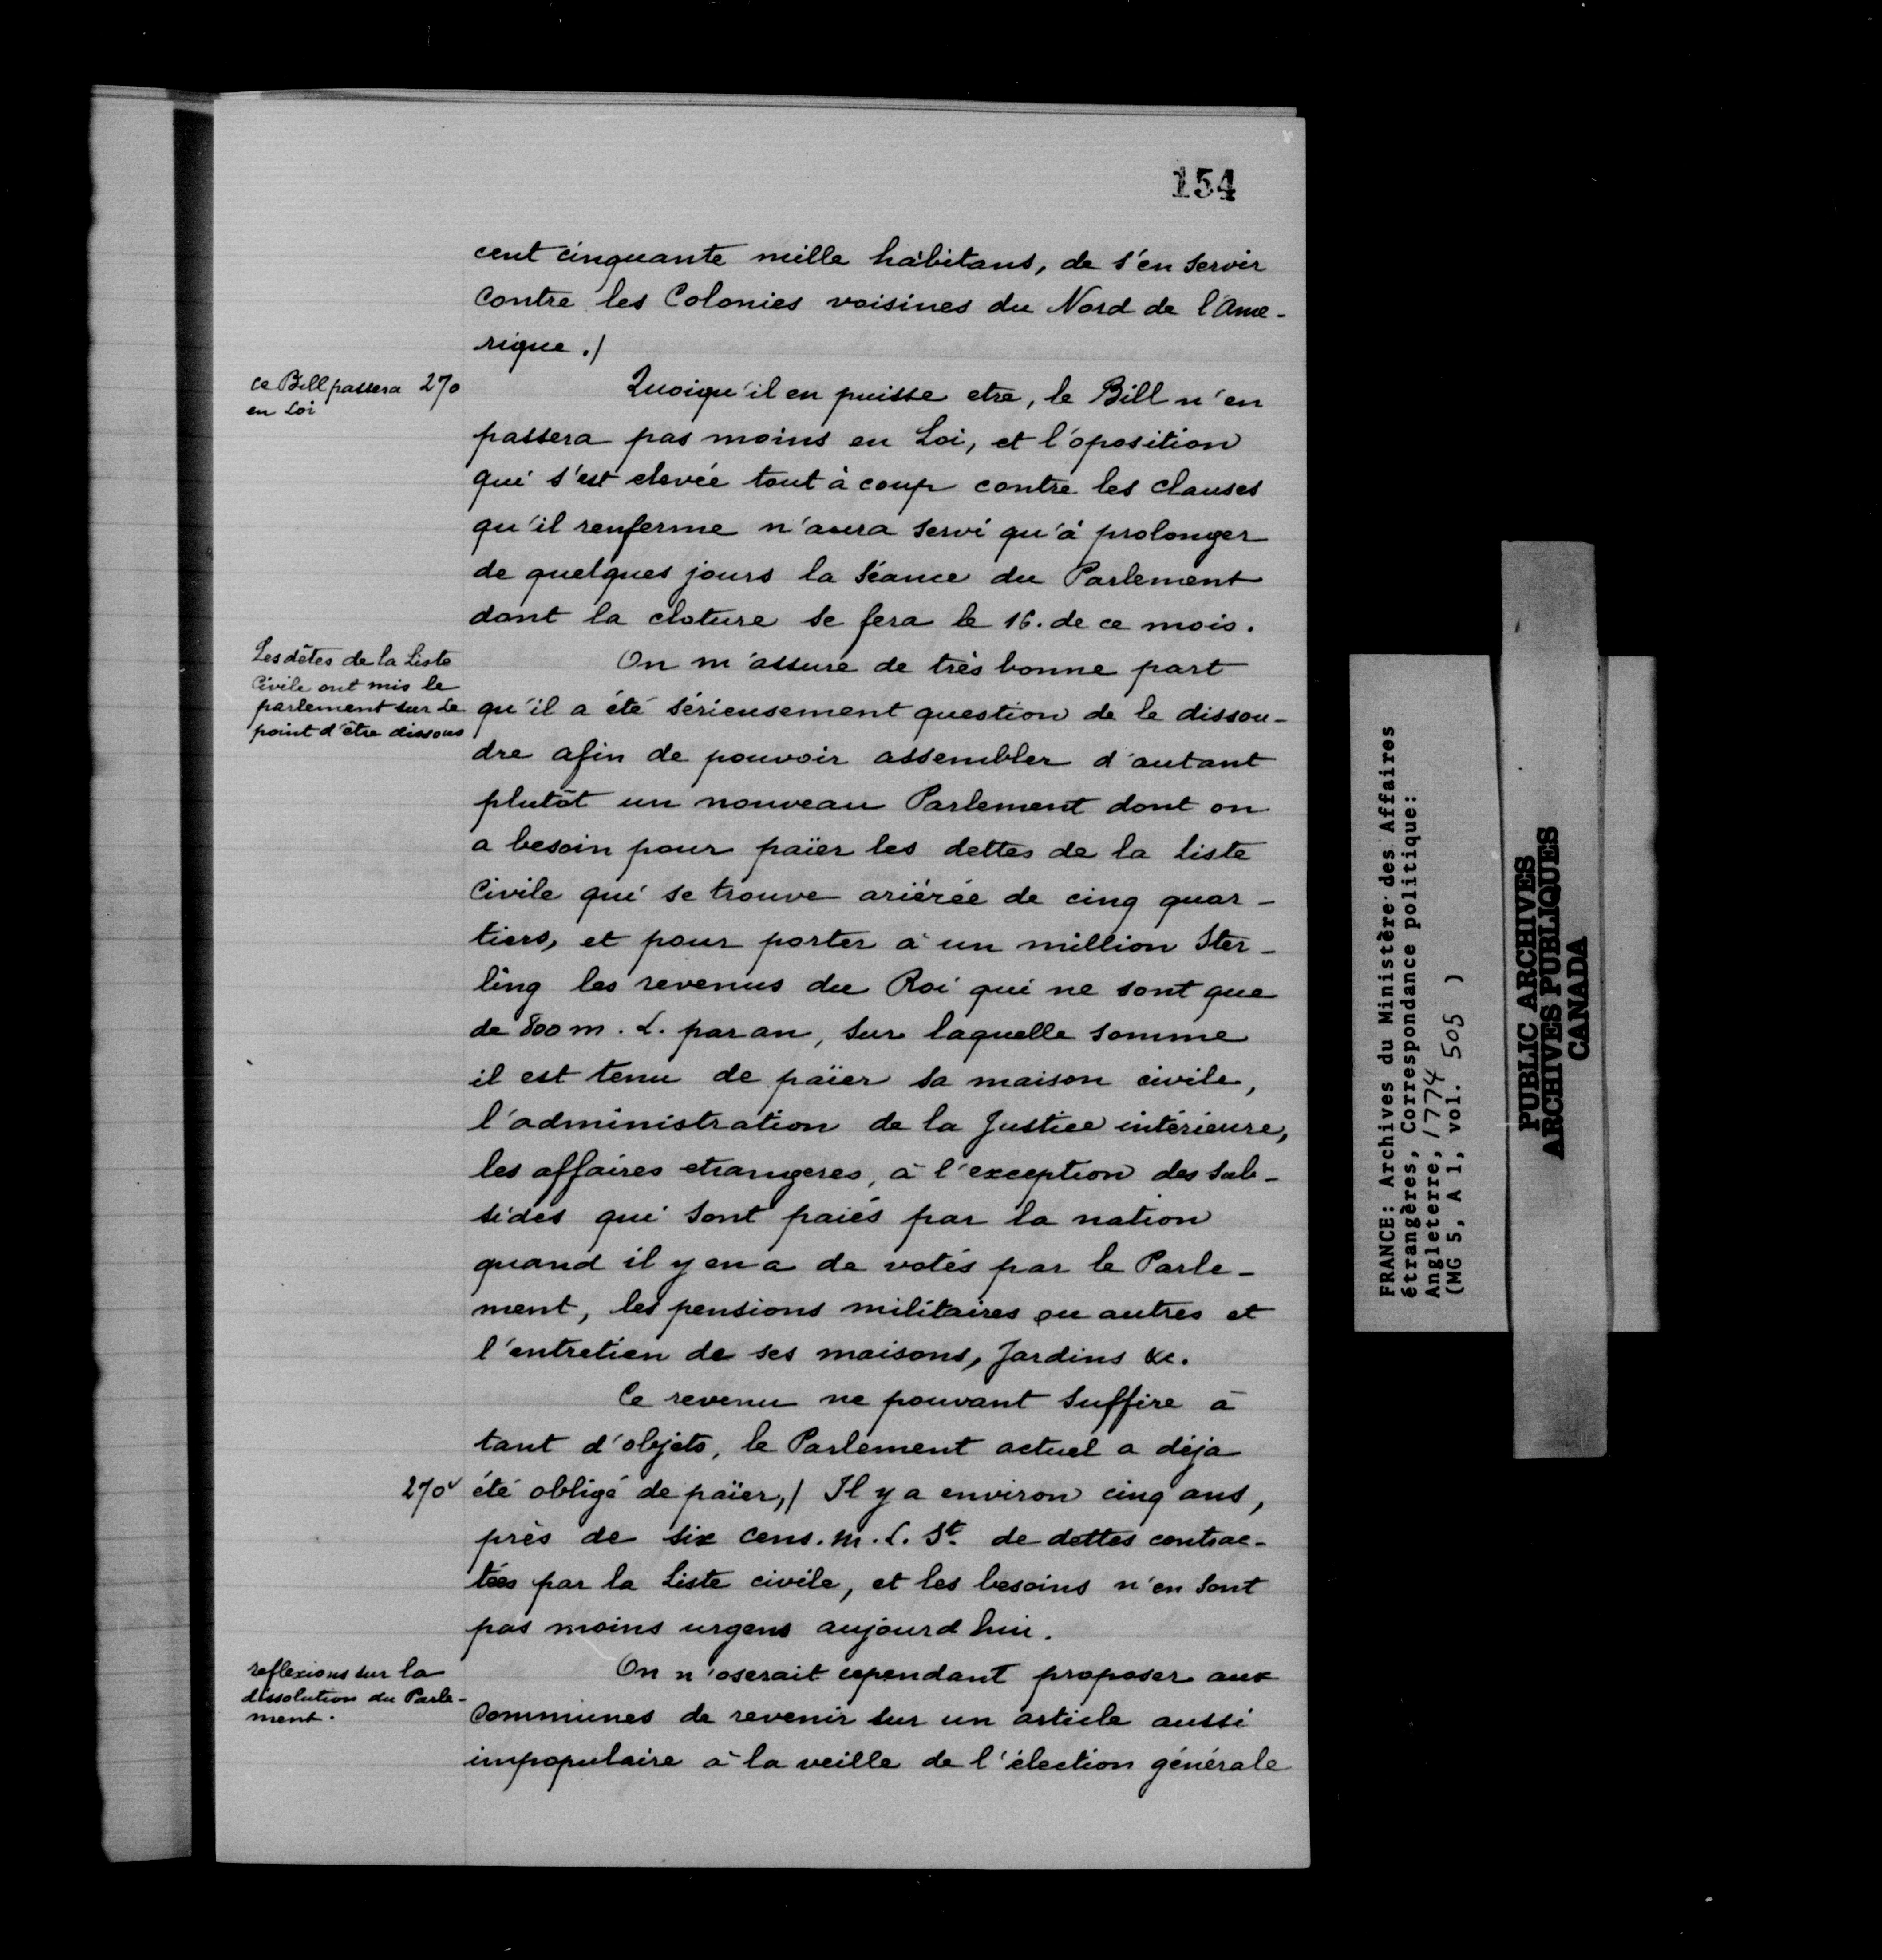 154
cent cinquante mille habitans, de s'en servir
contre les Colonies voisines du Nord de l'Ame-
rique./
ce Bill passera 270
en Loi
Quoiqu'il en puisse etre, le Bill n'en
passera pas moins en Loi, et l'oposition
qui s'est elevée tout à coup contre les clauses
qu'il renferme n'aura servi qu'à prolonger
de quelques jours la séance du Parlement
dont la cloture se fera le 16. de ce mois.
Les dêtes de la Liste
Civile ont mis le
parlement sur le
point d'être dissous
On m'assure de très bonne part
qu'il a été sérieusement question de le dissou-
dre afin de pouvoir assembler d'autant
plutôt un nouveau Parlement dont on
a besoin pour païer les dettes de la liste
Civile qui se trouve ariérée de cinq quar-
tiers, et pour porter à un million Ster-
ling les revenus du Roi qui ne sont que
de 800 m. L. par an, sur laquelle somme
il est tenu de païer sa maison civile,
l'administration de la Justice intérieure,
les affaires etrangeres, à l'exception des sub-
sides qui sont païés par la nation
quand il y en a de votés par le Parle-
ment, les pensions militaires ou autres et
l'entretien de ses maisons, Jardins &c.
Ce revenu ne pouvant suffire à
tant d'objets, le Parlement actuel a déja
270v été obligé de païer,/ Il y a environ cinq ans,
près de six cens. m. L. St. de dettes contrac-
tées par la Liste civile, et les besoins n'en sont
pas moins urgens aujourd hui.
reflexions sur la
dissolution du Parle-
ment.
On n'oserait cependant proposer aux
Communes de revenir sur un article aussi
impopulaire à la veille de l'élection générale
FRANCE: Archives du Ministère des Affaires
étrangères, Correspondance politique:
Angleterre, 1774
(MG 5, A 1, vol. 505 )
PUBLIC ARCHIVES
ARCHIVES PUBLIQUES
CANADA